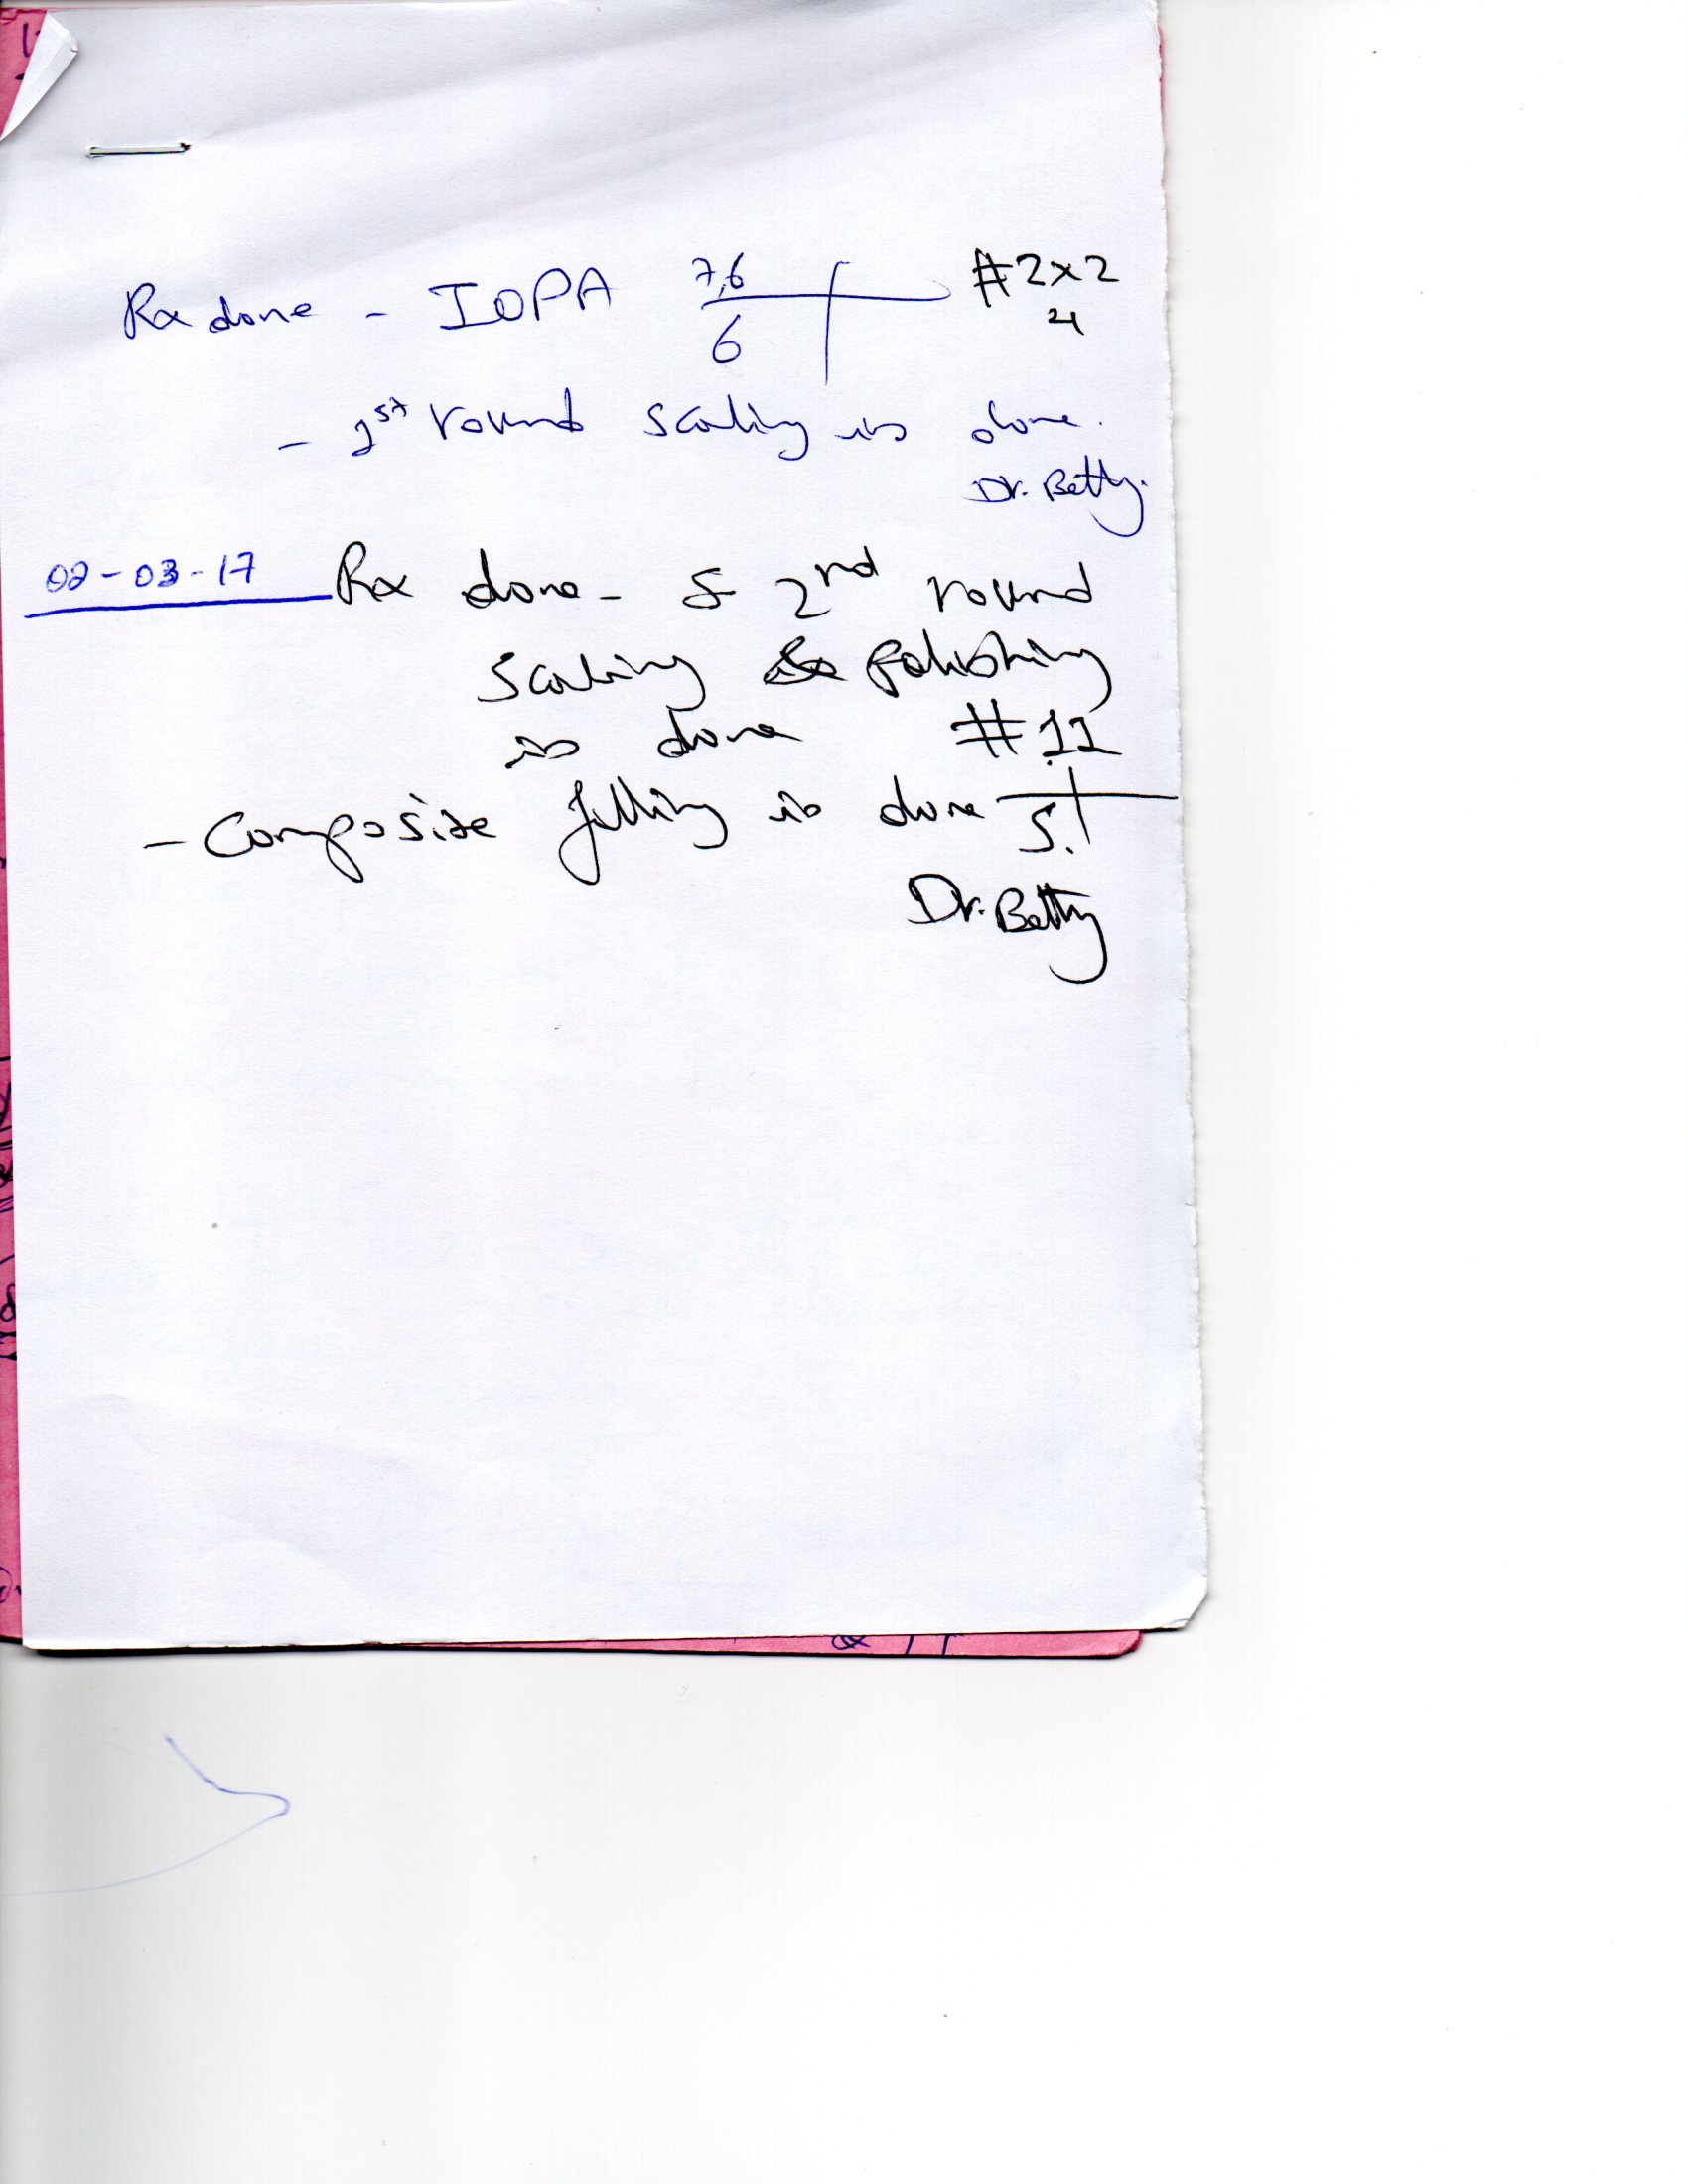 Rx done - IOPA 7,6 #2x2
6 4
- 1st round scaling is done.
Dr. Betty.
02-03-17 Rx done - 2nd round
scaling & polishing
is done #11
- Composite filling is done 5.
Dr. Betty